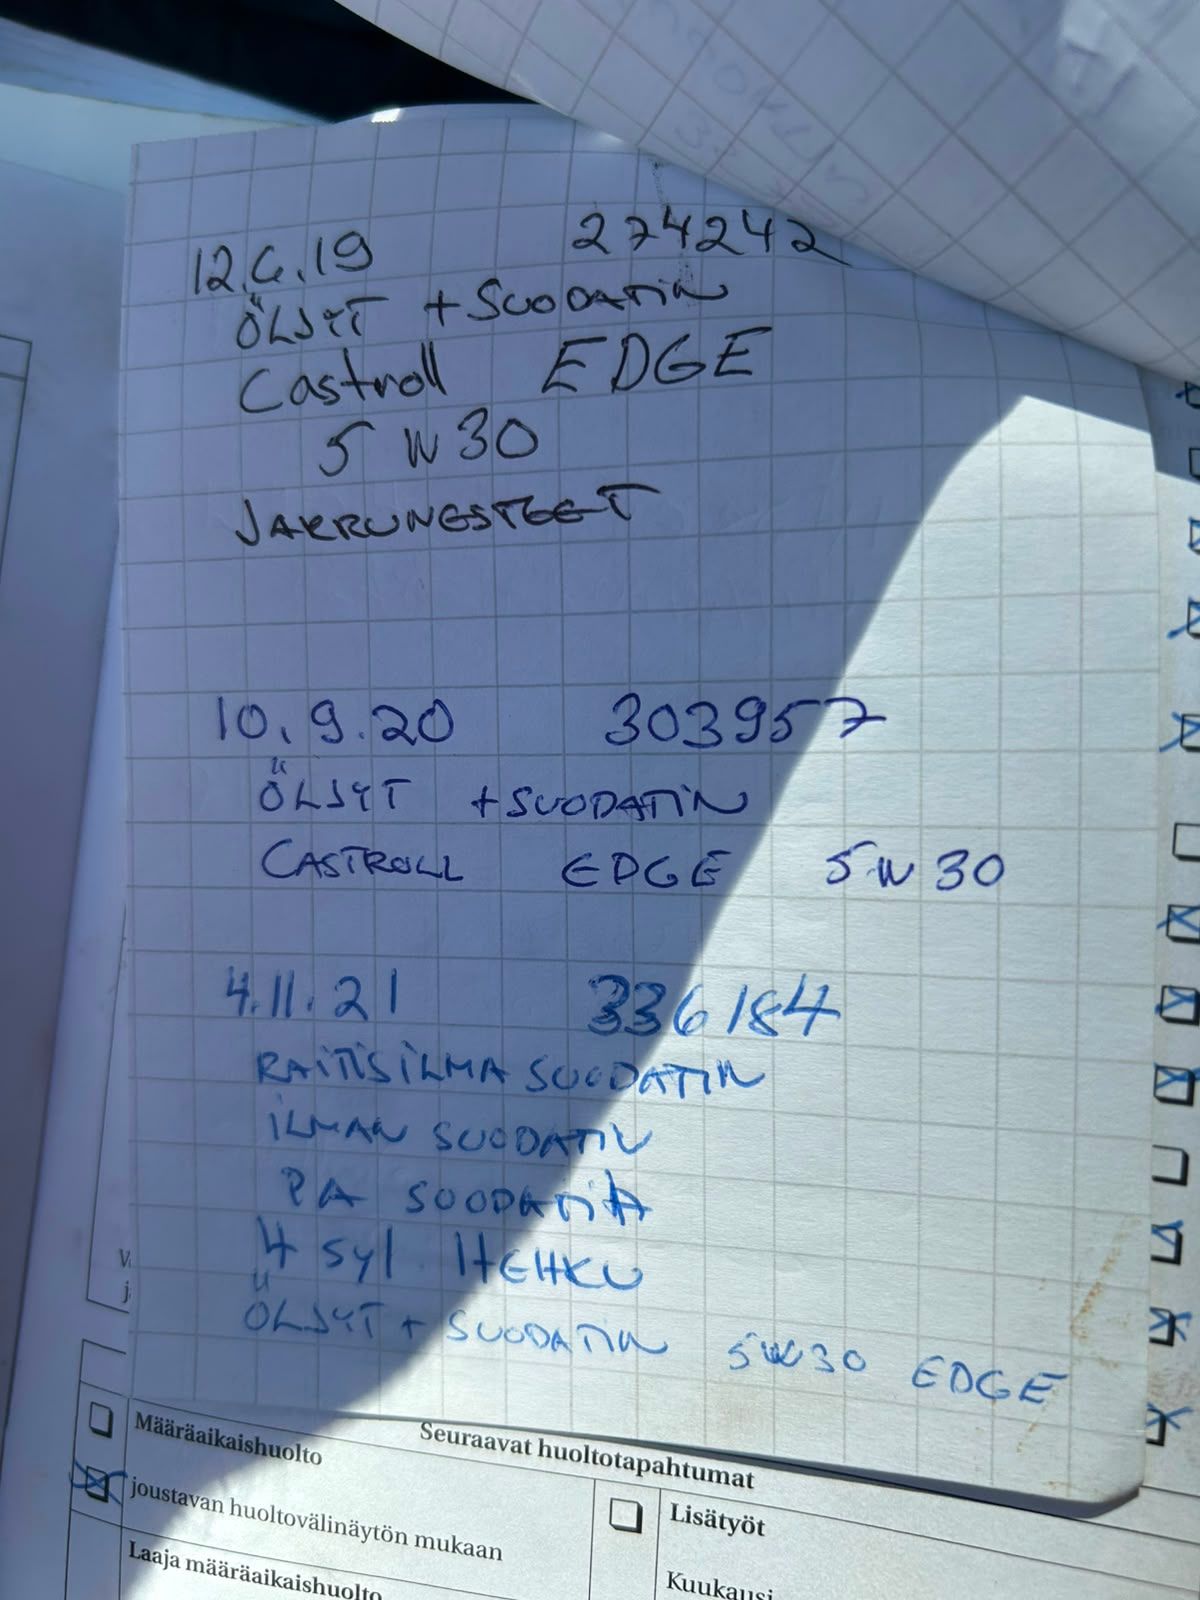 12.6.19 274242
ÖLJYT + SUODATIN
Castroll EDGE
5 W 30
JARRUNESTEET
10.9.20 303957
ÖLJYT + SUODATIN
CASTROLL EDGE 5W 30
4.11.21 336184
RAITISILMA SUODATIN
ILMAN SUODATIN
PA SUODATIN
4 syl HEHKU
ÖLJYT + SUODATIN 5W30 EDGE
Seuraavat huoltotapahtumat
Määräaikaishuolto
joustavan huoltovälinäytön mukaan
Lisätyöt
Laaja määräaikaishuolto
Kuukausi